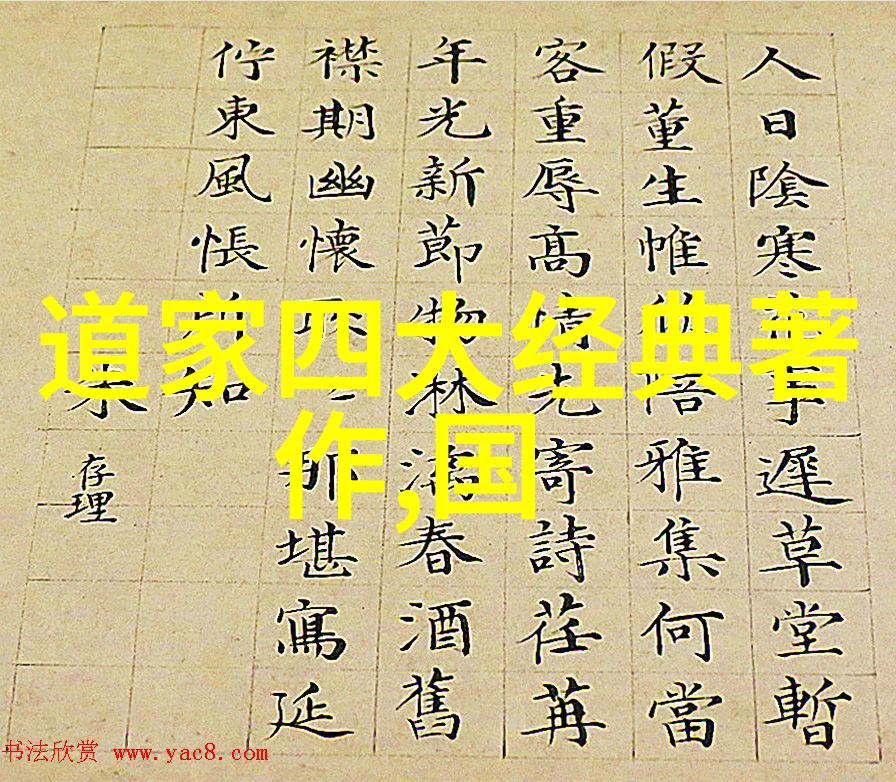 人日陰寒事遲草堂暫
假董生帷陪雅集何當
客重辱高情先寄詩荏苒
年光新節物淋漓春酒舊
襟期幽懷堪寫延
佇東風悵知
存理
道家四大经典著
作,国
书法欣赏 www.yac8.com